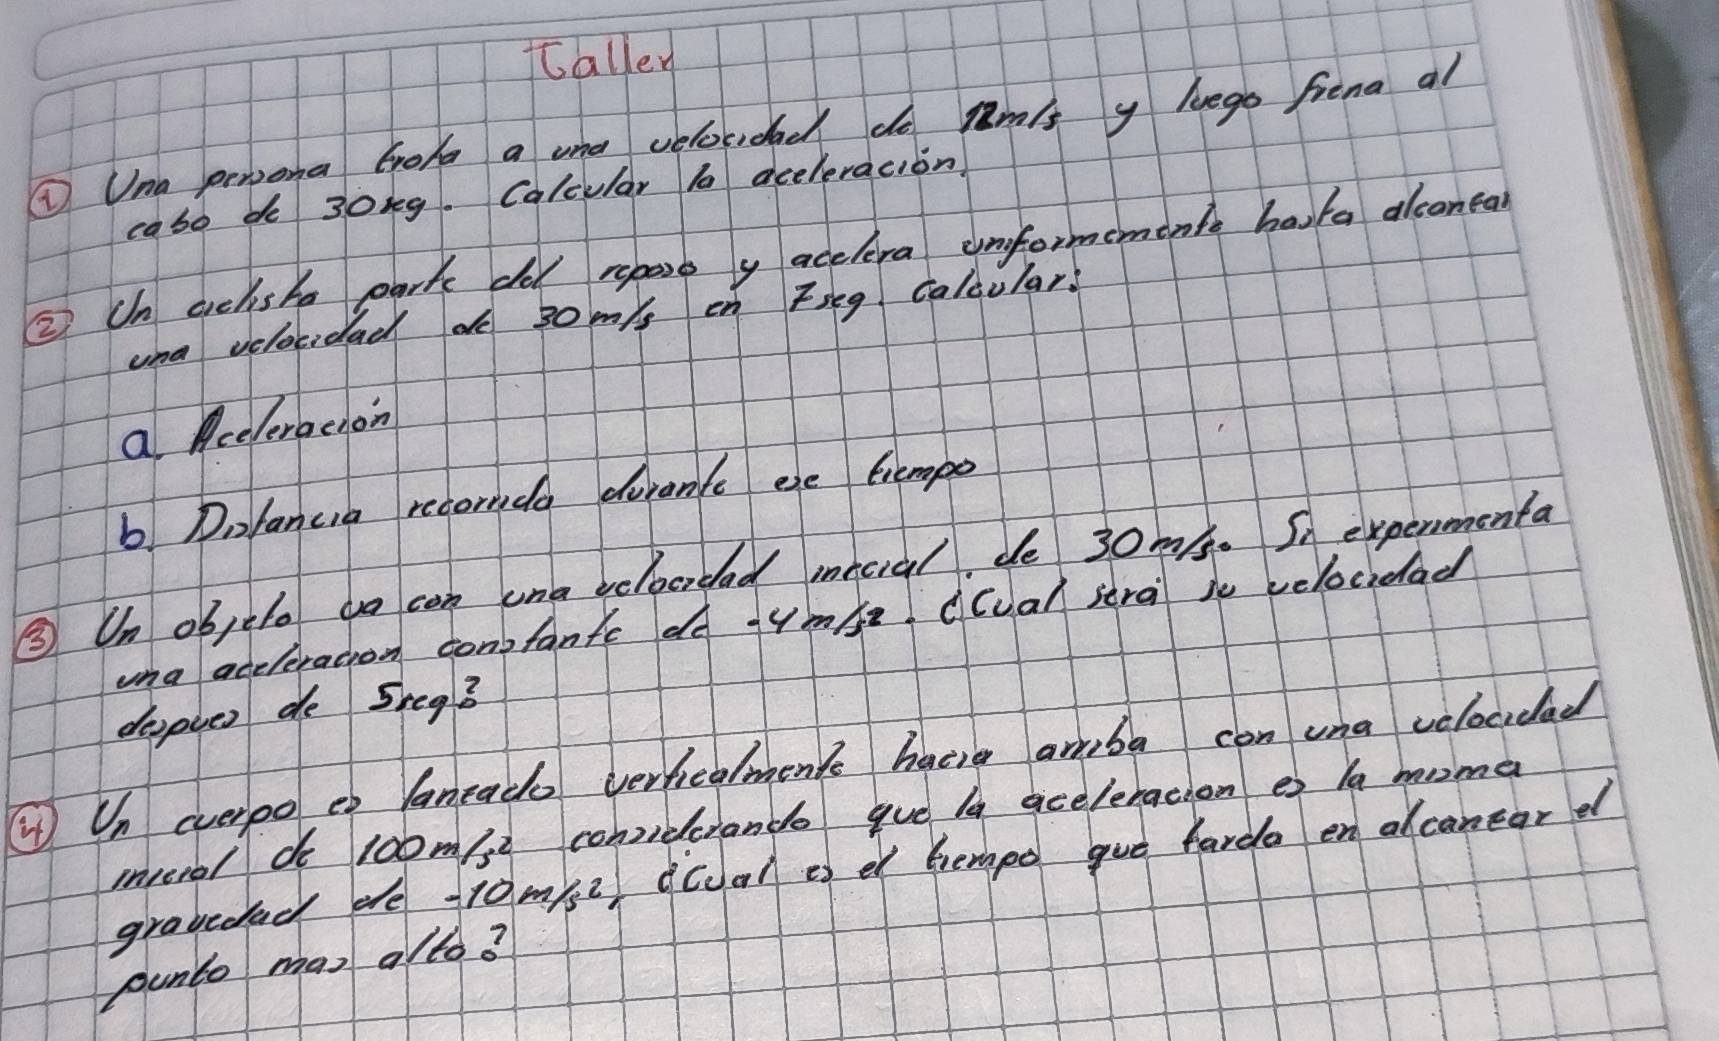 Taller
① Una persona trota a una velocidad de 12m/s y luego frena al
cabo de 30kg. Calcular la aceleración.
② Un ciclista parte del reposo y acelera uniformemente hasta alcanzar
una velocidad de 30 m/s en 7seg. Calcular:
a. Aceleración
b. Distancia recorrida durante ese tiempo
③ Un objeto va con una velocidad inicial. de 30 m/s. Si experimenta
una aceleracion constante de -4 m/s². ¿Cual será su velocidad
despues de 5seg?
④ Un cuerpo es lanzado verticalmente hacia arriba con una velocidad
inicial de 100 m/s² considerando que la aceleracion es la misma
gravedad de -10 m/s², ¿Cual es el tiempo que tarda en alcanzar el
punto mas alto?